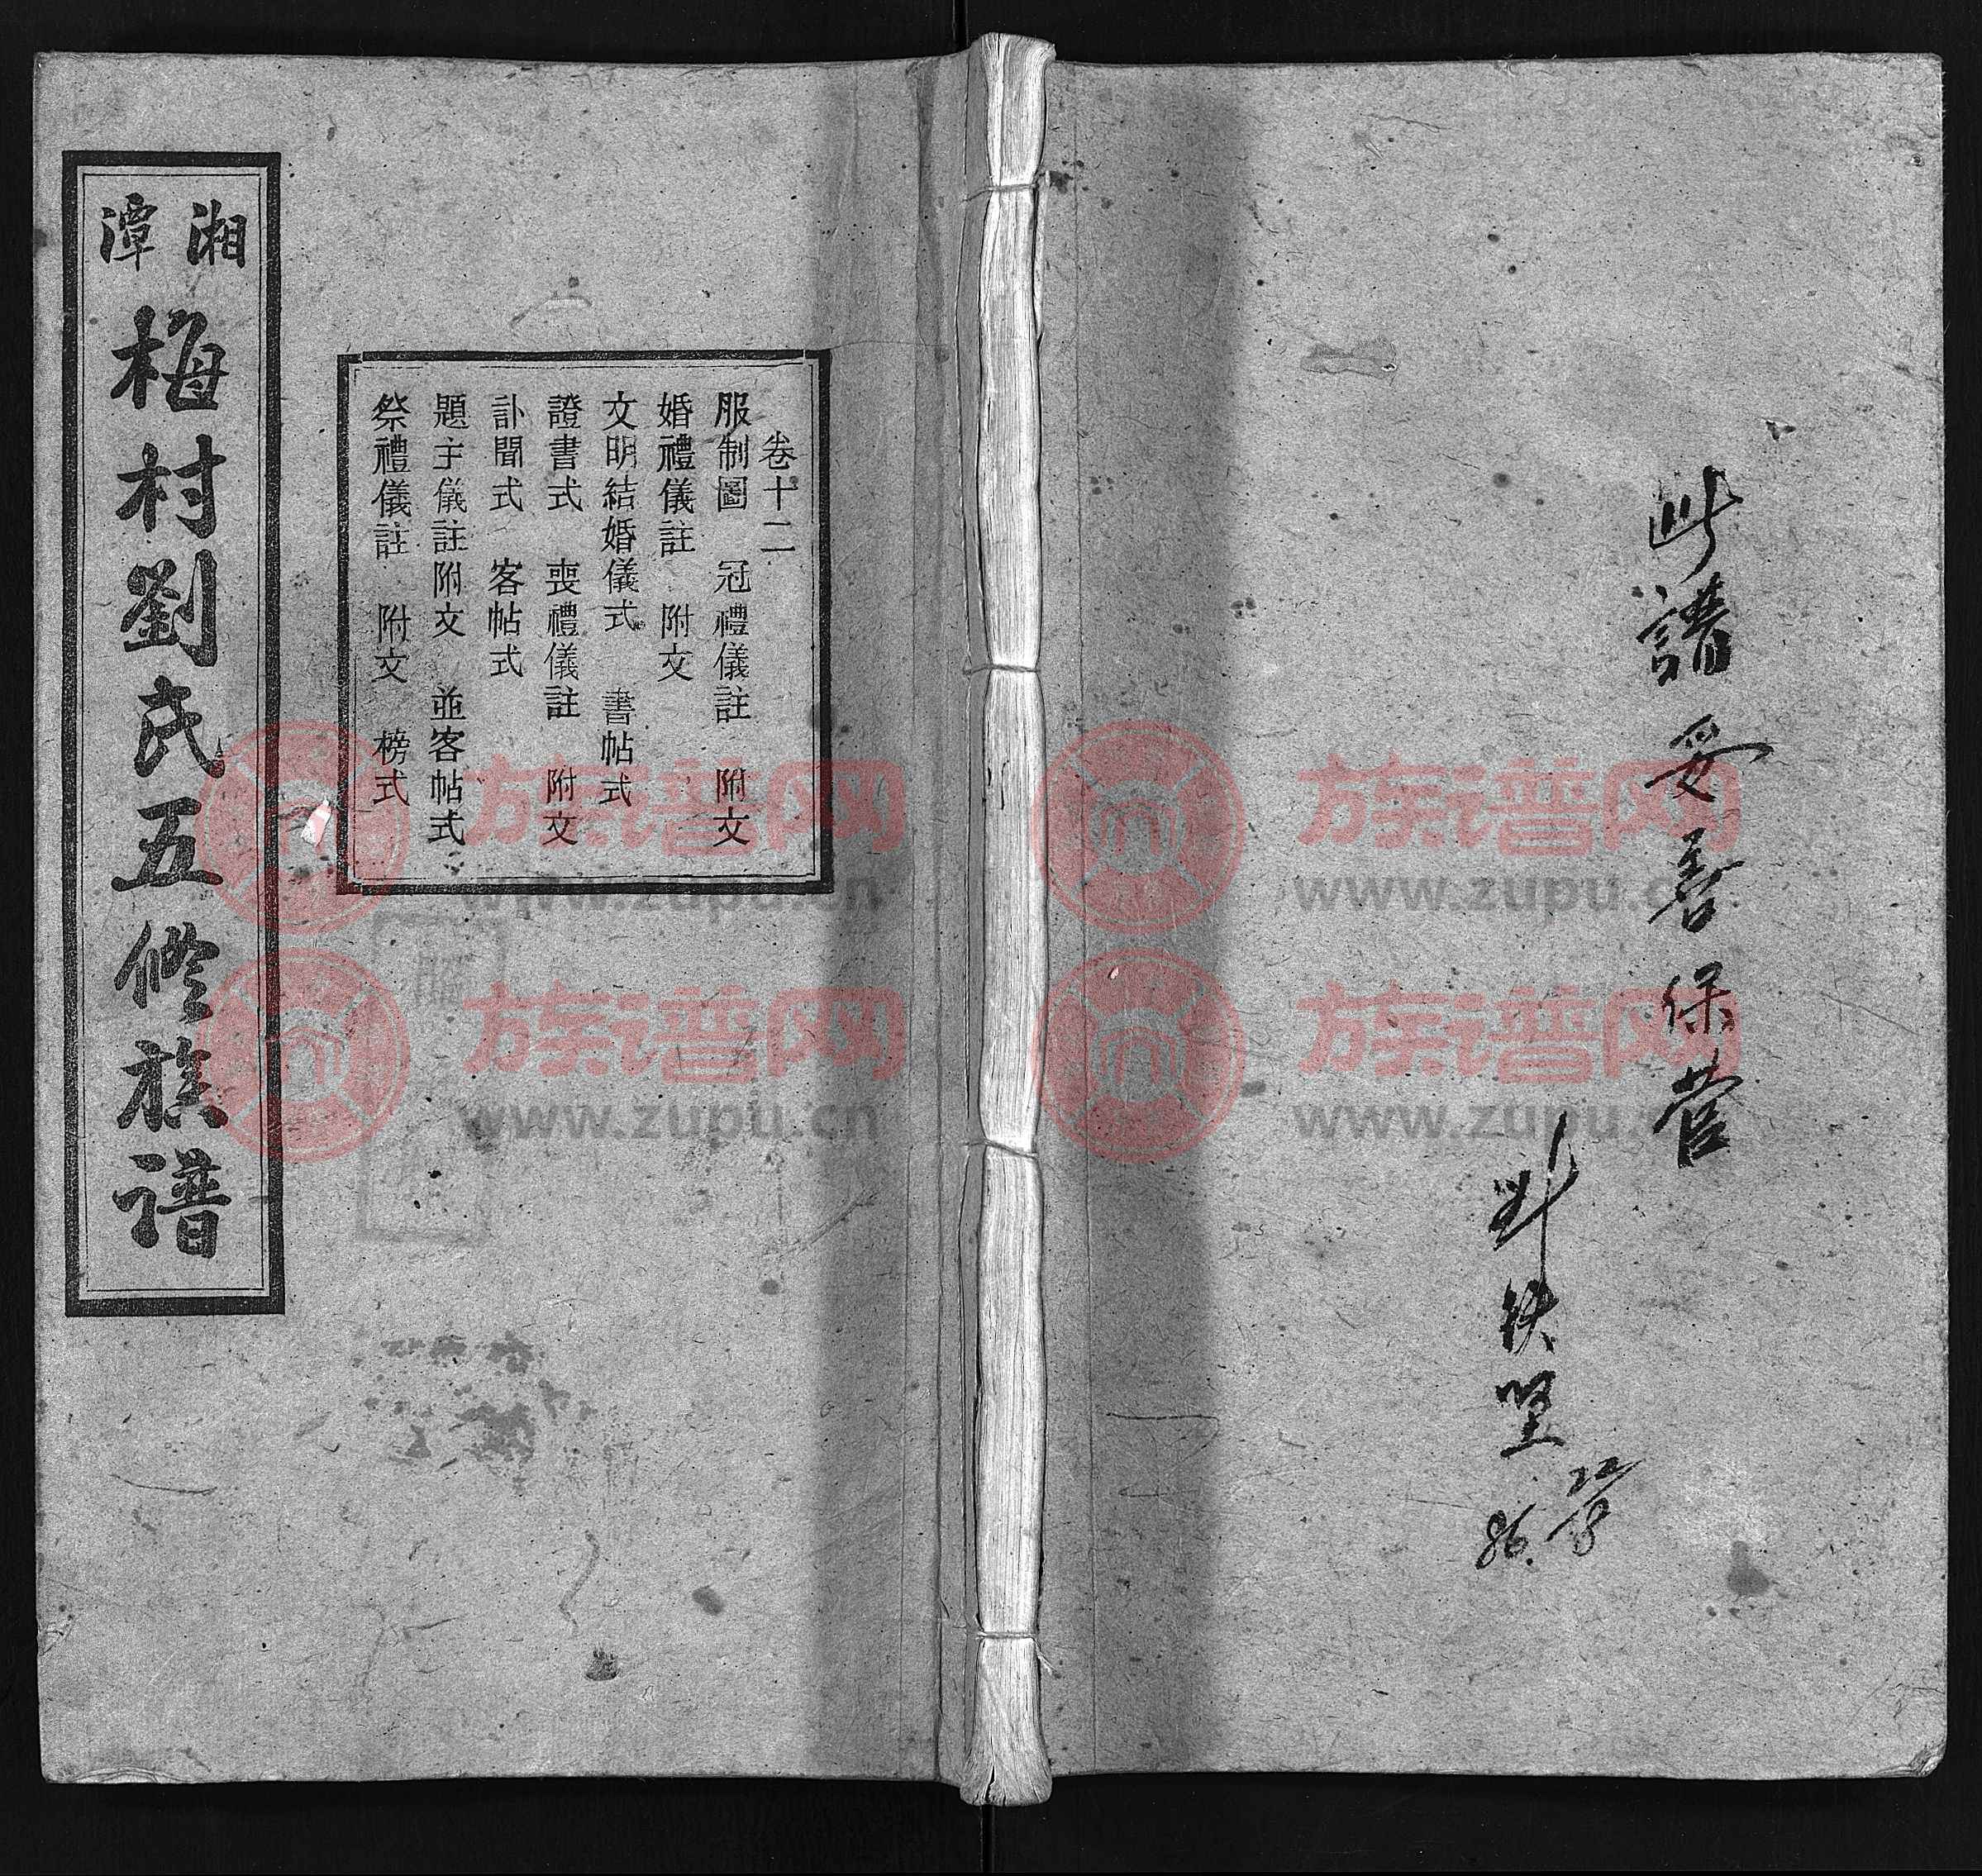 湘潭
梅村劉氏五修族譜
卷十二
服制圖 冠禮儀註 附文
婚禮儀註 附文
文明結婚儀式 書帖式
證書式 喪禮儀註 附文
訃聞式 客帖式
題主儀註附文 並客帖式
祭禮儀註 附文 榜式
此譜妥善保管
86.
族谱网
www.zupu.cn
族谱网
www.zupu.cn
族谱网
www.zupu.cn
族谱网
www.zupu.cn